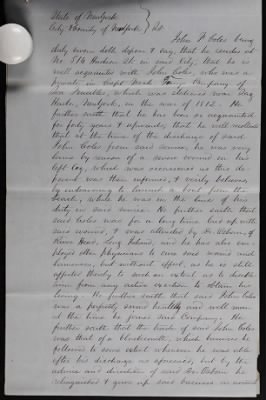 State of New York
City County of New York } ss.
John F. Coles being
duly sworn doth depose & say, that he resides at
No. 516 Hudson St in said City, that he is
well acquainted with John Coles, who was a
private in Capt Company of
Sea Fencibles, which was stationed near Sag
Harbor, New York, in the war of 1812. He
further saith that he has been so acquainted
for forty years & upwards, that he well recollects
that at the time of the discharge of said
John Coles from said service, he was very
lame by reason of a severe wound in his
left leg, which was occasioned as this de-
ponent was then informed, & verily believes,
by endeavoring to launch a boat from the
beach, while he was in the line of his
duty in said service. He further saith that
said Coles was for a long time laid up with
said wound, & was attended by Dr. Osborn, of
River Head, Long Island, and he has also em-
ployed other physicians to cure said wound and
lameness, but without effect, as he is still
affected thereby to such an extent as to disable
him from any active exertion to obtain his
living. He further saith that said John Coles
was a perfectly sound healthy and well man
at the time he joined said Company. He
further saith that the trade of said John Coles
was that of a blacksmith, which business he
followed to some extent whenever he was able
after his discharge as aforesaid, but by the
advice and direction of said Dr Osborn he
relinquished & gave up said business